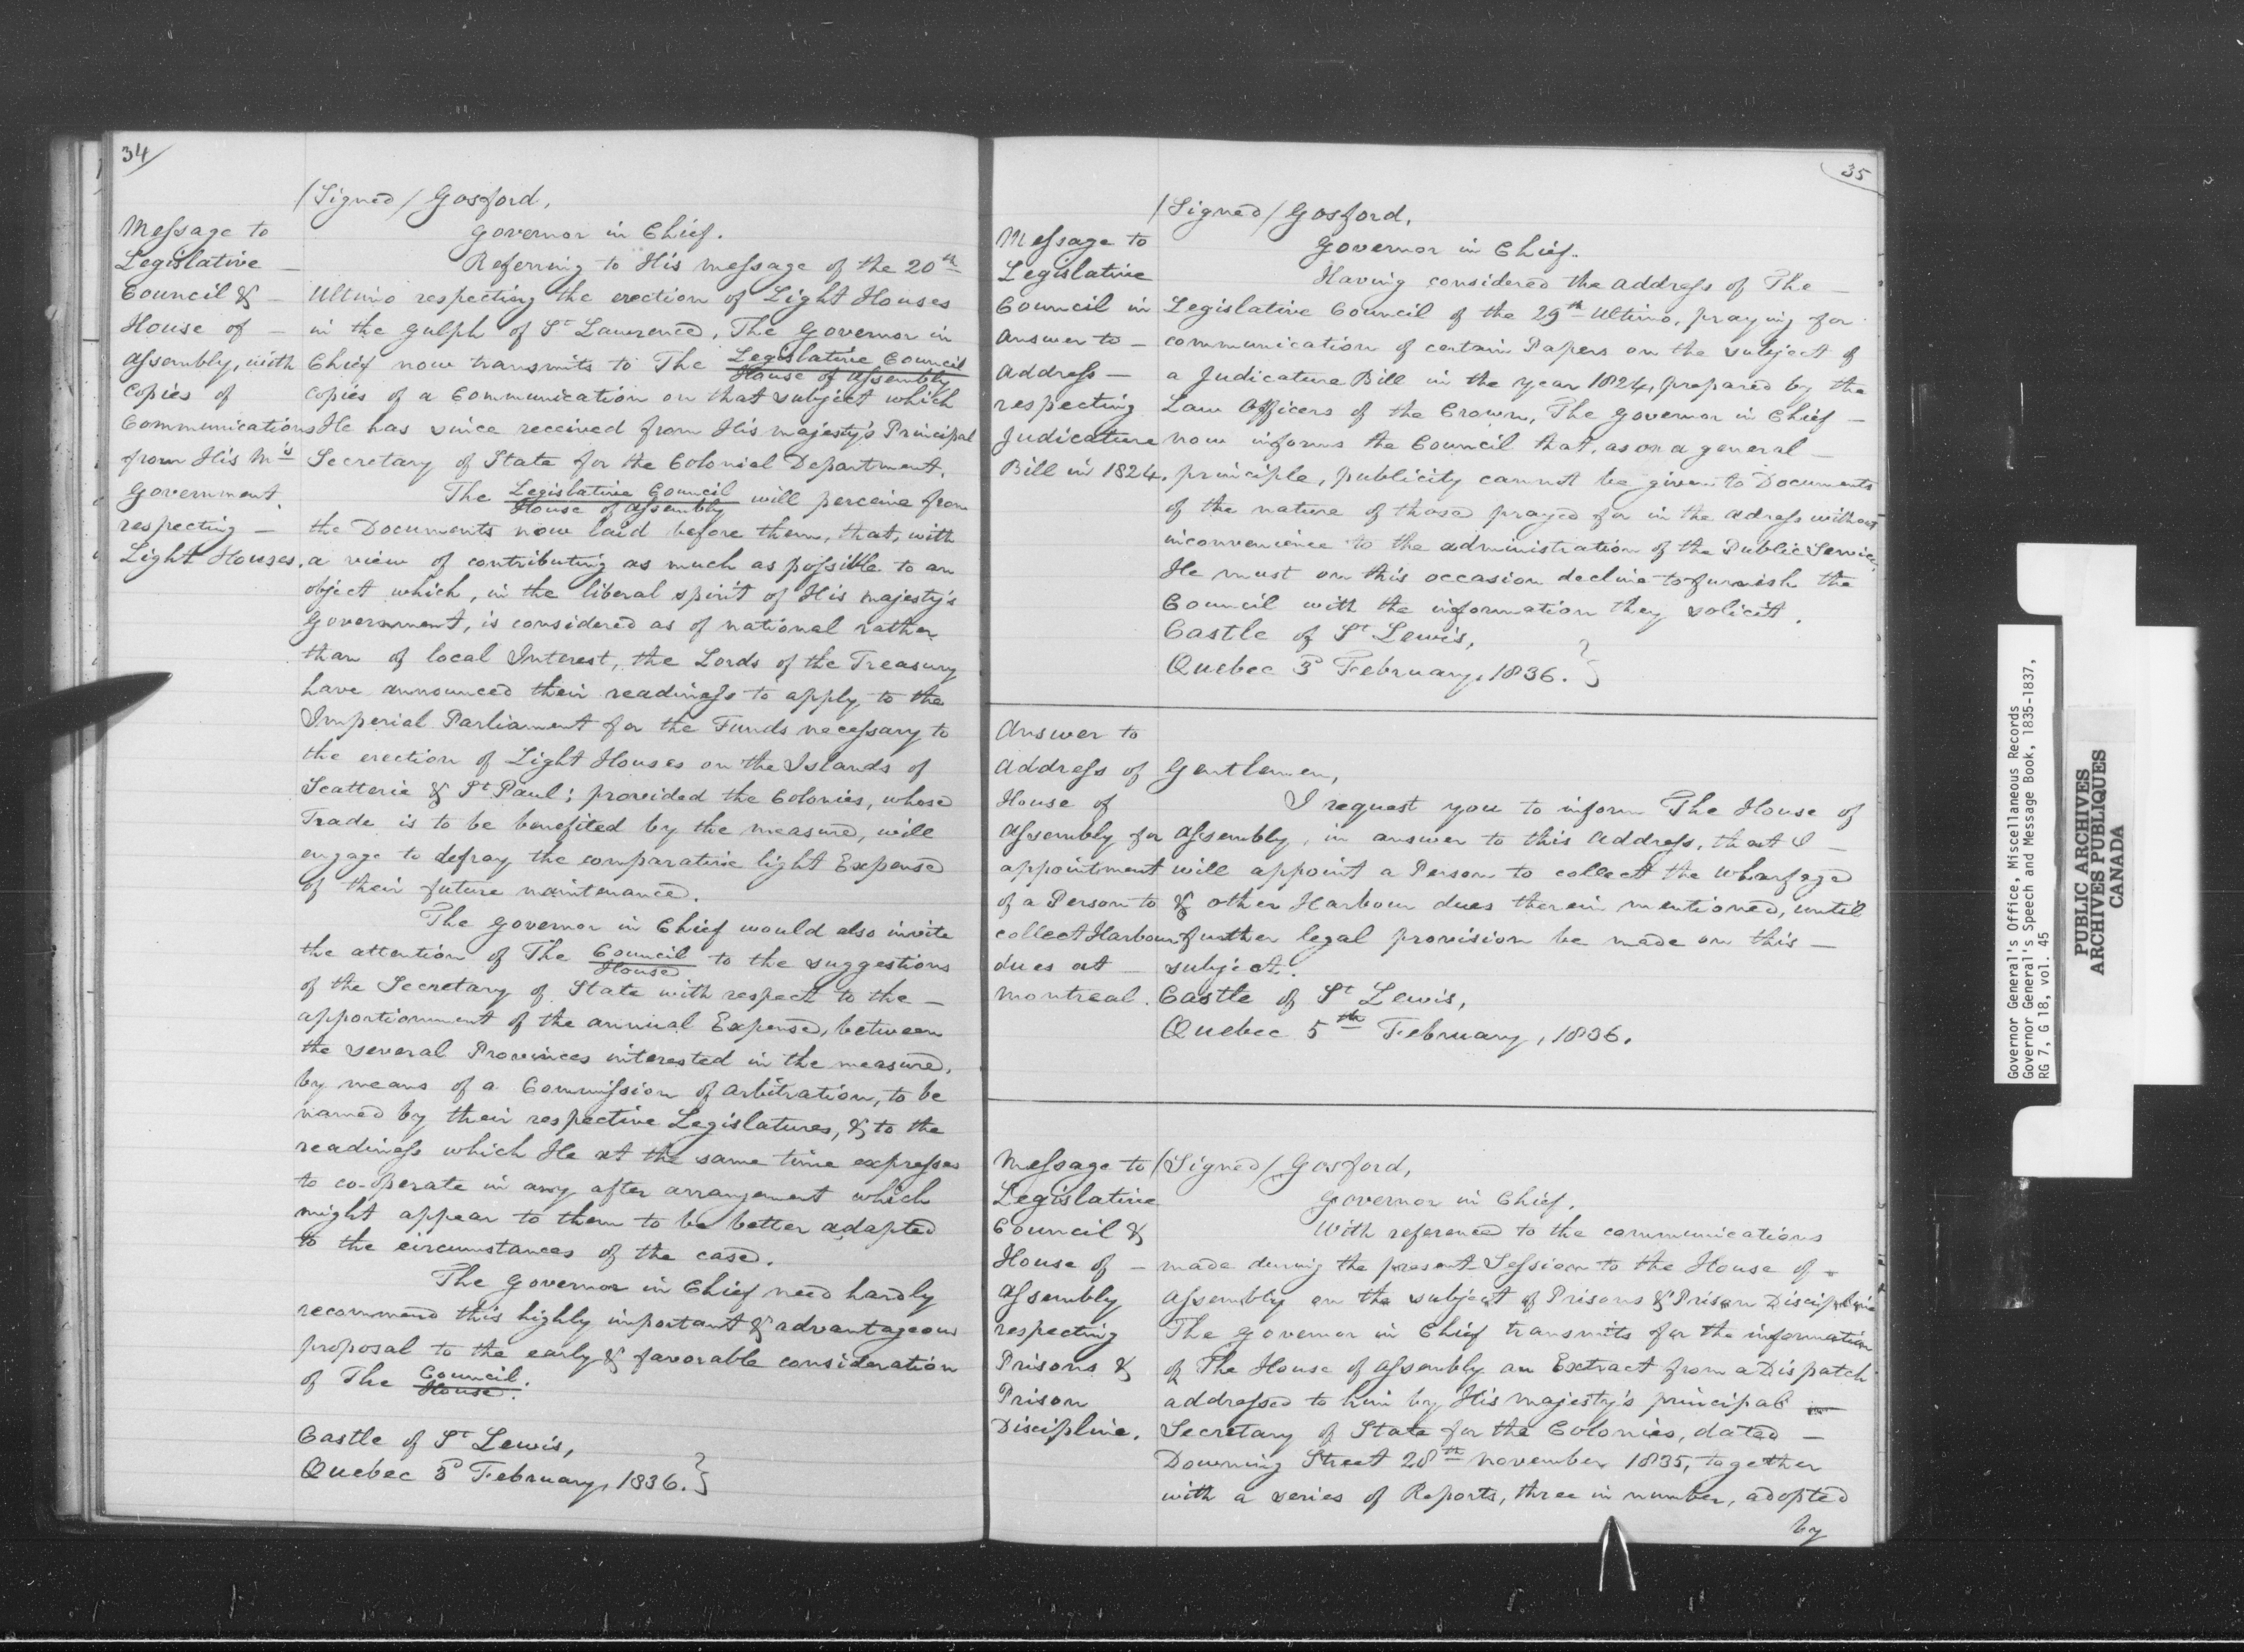 34
/Signed/ Gosford,
Governor in Chief.
Message to
Legislative —
Council & —
House of —
Assembly, with
Copies of
Communications
from His M's
Government
respecting —
Light Houses.
Referring to His Message of the 20th
Ultimo respecting the erection of Light Houses
in the Gulph of St Lawrence, The Governor in
Chief now transmits to The Legislative Council
House of Assembly
copies of a Communication on that subject which
He has since received from His Majesty's Principal
Secretary of State for the Colonial Department.
The Legislative Council will perceive from
House of Assembly
the Documents now laid before them, that, with
a view of contributing as much as possible to an
object which, in the liberal spirit of His Majesty's
Government, is considered as of national rather
than of local Interest, the Lords of the Treasury
have announced their readiness to apply to the
Imperial Parliament for the Funds necessary to
the erection of Light Houses on the Islands of
Scatterie & St Paul; provided the Colonies, whose
Trade is to be benefited by the measure, will
engage to defray the comparative light Expense
of their future maintenance.
The Governor in Chief would also invite
the attention of The Council to the suggestions
House
of the Secretary of State with respect to the —
apportionment of the annual Expense, between
the several Provinces interested in the measure,
by means of a Commission of Arbitration, to be
named by their respective Legislatures, & to the
readiness which He at the same time expresses
to co-operate in any after arrangement which
might appear to them to be better adapted
to the circumstances of the case.
The Governor in Chief need hardly
recommend this highly important & advantageous
proposal to the early & favorable consideration
of The Council.
House.
Castle of St Lewis,
Quebec 3d February, 1836. }
35
/Signed/ Gosford,
Governor in Chief.
Message to
Legislative
Council in
answer to —
Address —
respecting
Judicature
Bill in 1824.
Having considered the Address of The —
Legislative Council of the 29th Ultimo, praying for
communication of certain Papers on the subject of
a Judicature Bill in the year 1824, prepared by the
Law Officers of the Crown, The Governor in Chief —
now informs the Council that, as on a general —
principle, publicity cannot be given to Documents
of the nature of those prayed for in the adress without
inconvenience to the administration of the Public Service,
He must on this occasion decline to furnish the
Council with the information they solicit.
Castle of St Lewis,
Quebec 3d February, 1836. }
Answer to
Address of
House of
Assembly for
appointment
of a Person to
collect Harbour
dues at —
Montreal.
Gentlemen,
I request you to inform The House of
Assembly, in answer to this Address, that I —
will appoint a Person to collect the Wharfage
& other Harbour dues therein mentioned, until
further legal provision be made on this —
subject.
Castle of St Lewis,
Quebec 5th February, 1836.
Message to
Legislative
Council &
House of —
Assembly
respecting
Prisons &
Prison
Discipline.
/Signed/ Gosford,
Governor in Chief.
With reference to the communications
made during the present Session to the House of —
Assembly on the subject of Prisons & Prison Discipline
The Governor in Chief transmits for the information
of The House of Assembly an Extract from a Dispatch
addressed to him by His Majesty's principal —
Secretary of State for the Colonies, dated —
Downing Street 28th November 1835, together
with a series of Reports, three in number, adopted
by
Governor General's Office, Miscellaneous Records
Governor General's Speech and Message Book, 1835-1837,
RG 7, G 18, vol. 45
PUBLIC ARCHIVES
ARCHIVES PUBLIQUES
CANADA